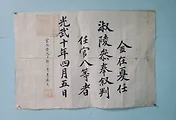 金在夏任
淑陵參奉敘判
任官八等者
光武十年四月五日